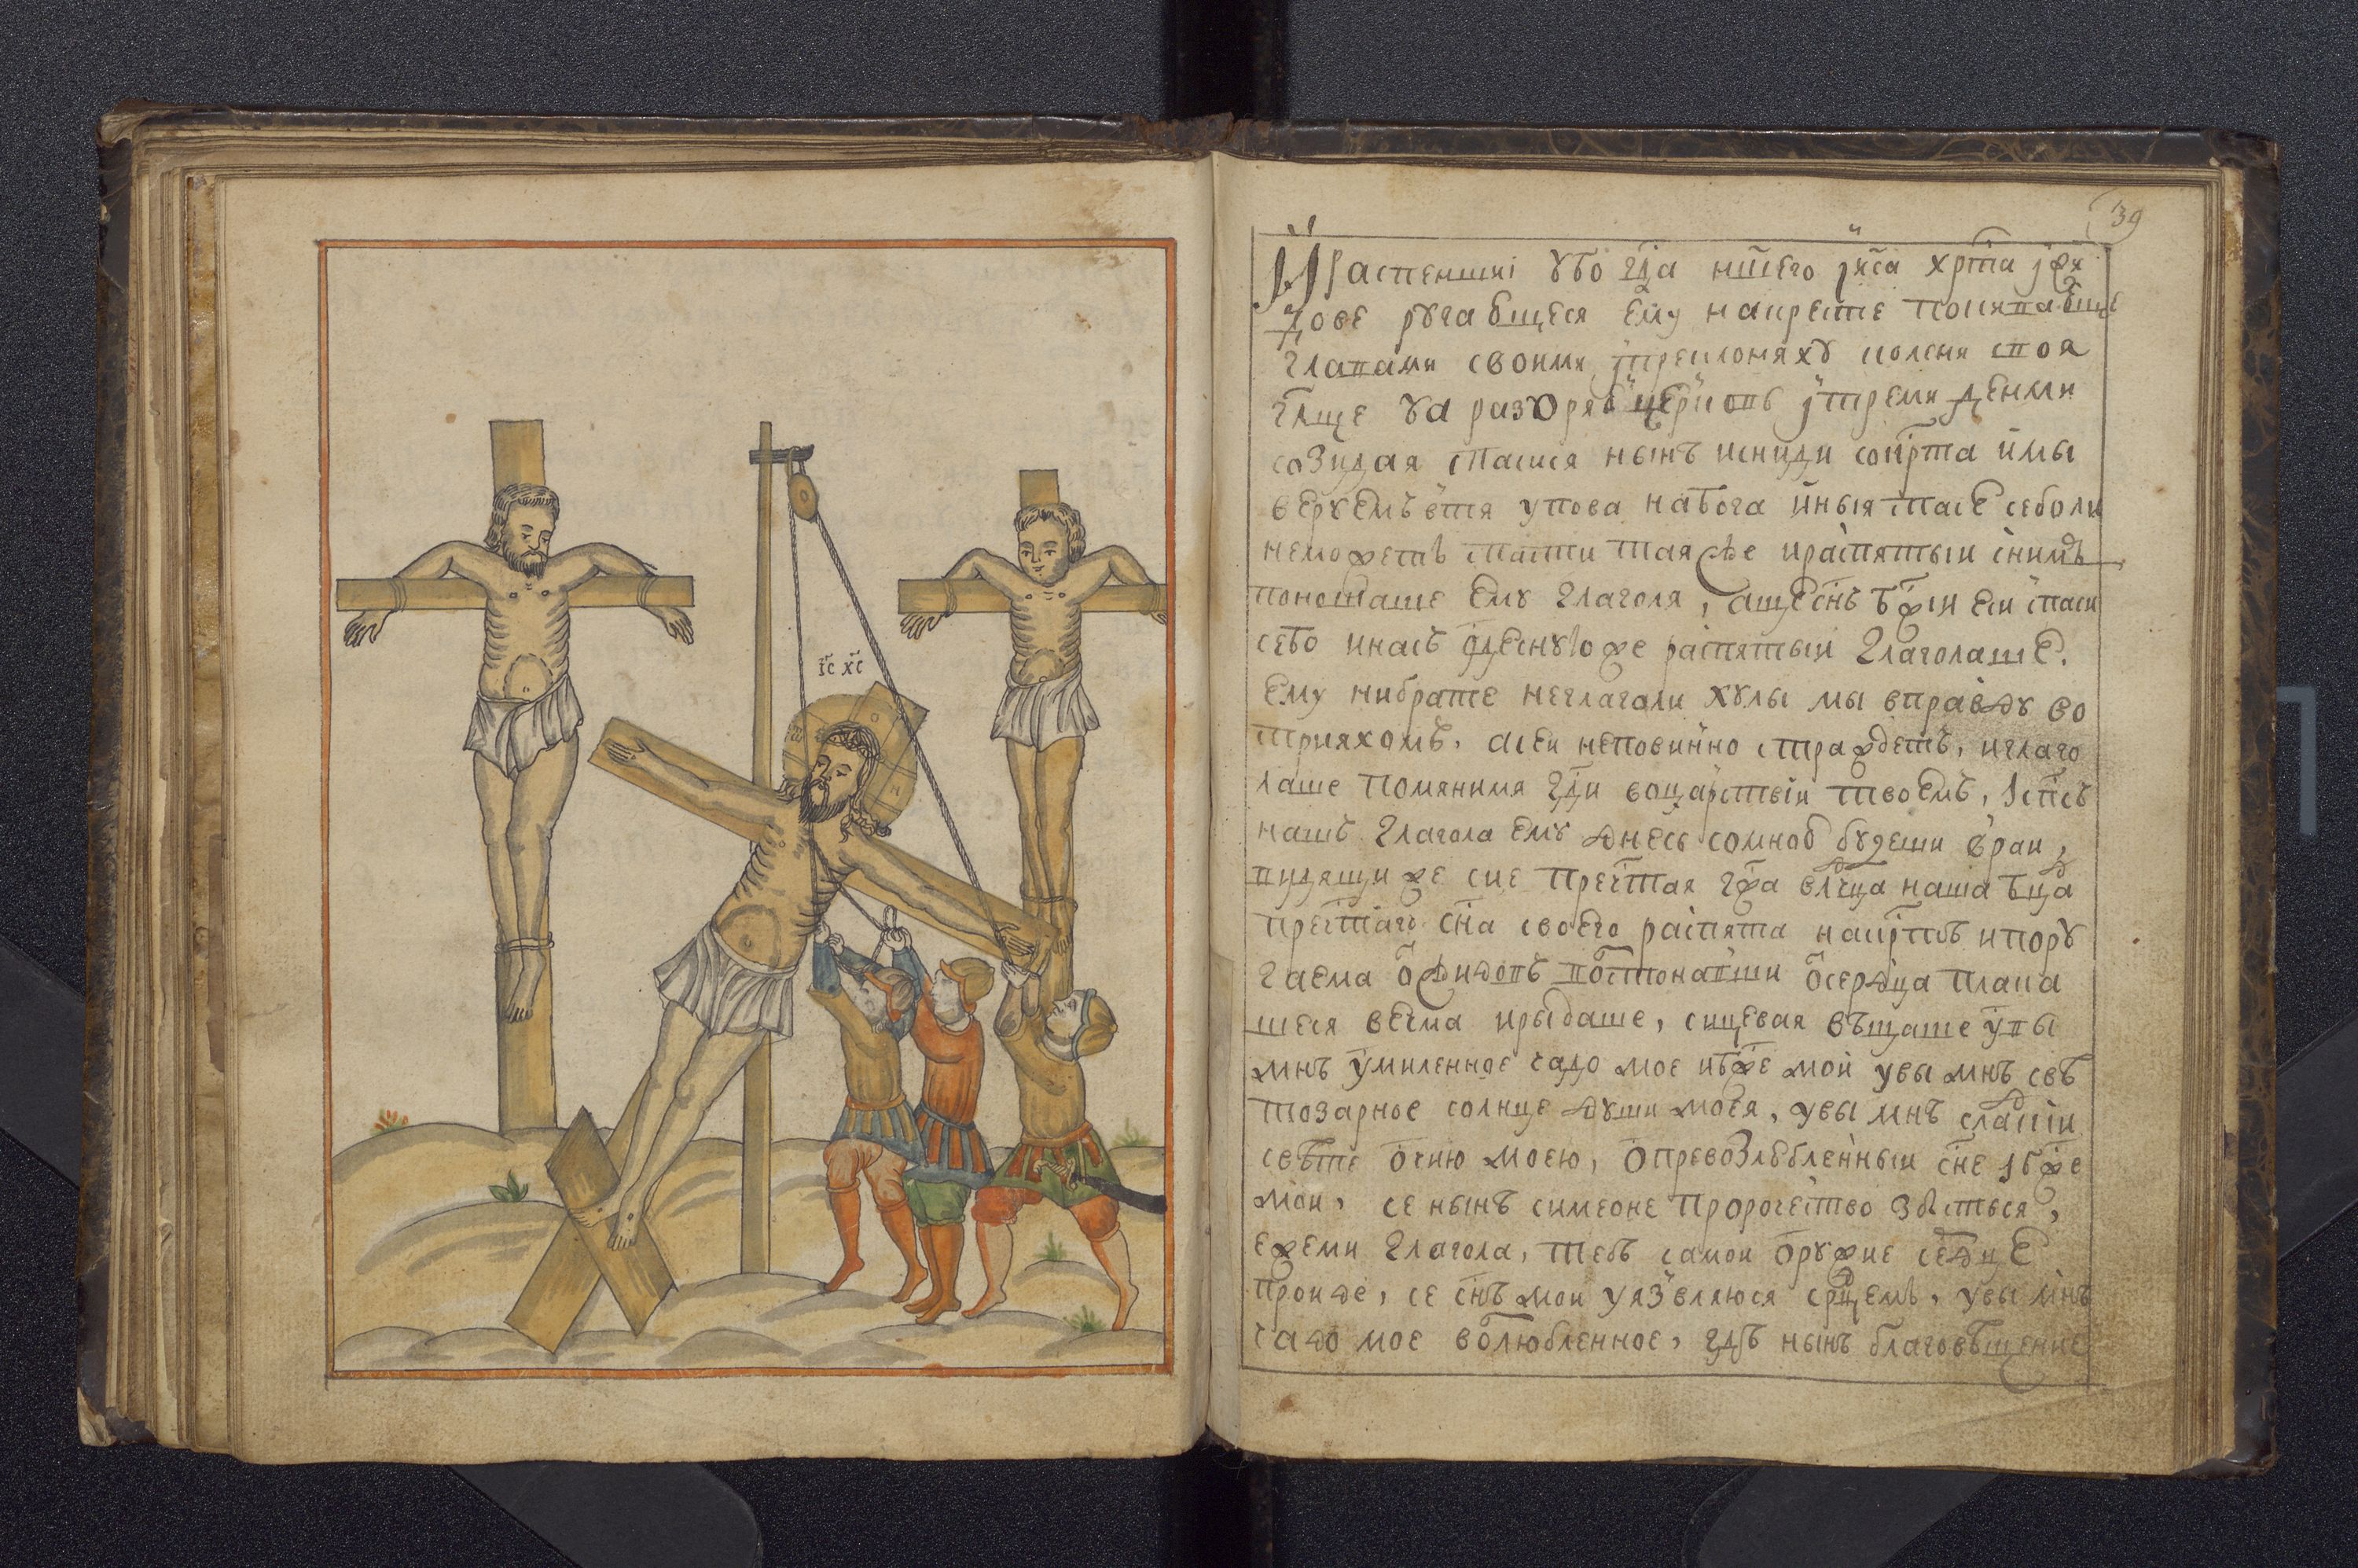 І҃С Х҃С
О Н
39
И распеншиі ꙋбо гд҃а нш҃его ӏи҃са хрт҃а ӏжи
дове рꙋгабщеся ему накресте покипабще
главами своими ӏпреклоняхꙋ колени споя
гл҃ще ꙋа разоряб церковь ӏтреми денми
созидая спасися нынѣ исниди сокрт҃а имы
верꙋемъ втя упова набога иныя спасе себоли
неможетъ спасти такожде ираспятыи сним
поношаше емꙋ глаголя, аще сн҃ъ бж҃ии еси спаси
себо инасъ ѡдеснꙋю же распятыи глаголаше.
ему нибрате неглаголи хꙋлы мы вправдꙋ во
сприяхомъ, асеи неповинно страждетъ, иглаго
лаше помянимя гд҃и воцарствіи твоемъ, ӏсп҃съ
нашъ глагола емꙋ днесь сомноб бꙋдеши враи,
пидящи же сие преч҃тая гж҃а влчц҃а наша бц҃а
преч҃таго сн҃а своего распята накрт҃ѣ ипорꙋ
гаема ѿжидопъ посстонапши ѿсердца плака
шеся велма ирыдаше, сицевая вѣщаше ӱпы
мнѣ умиленное чадо мое ибж҃е мои увы мнѣ свѣ
тозарное солнце дꙋши моея, увы мнѣ сладкіи
свѣте очию моею, ѻпревозлюбленныи сн҃е ӏбж҃е
мои, се нынѣ симеоне пророчество збысться,
ежеми глагола, тебѣ самои ѻрꙋжие сердце
проиде, се сн҃ъ мои уязвляюся срдцемъ, увы мнѣ
чадо мое возлюбленное, гдѣ нынѣ благовѣщение